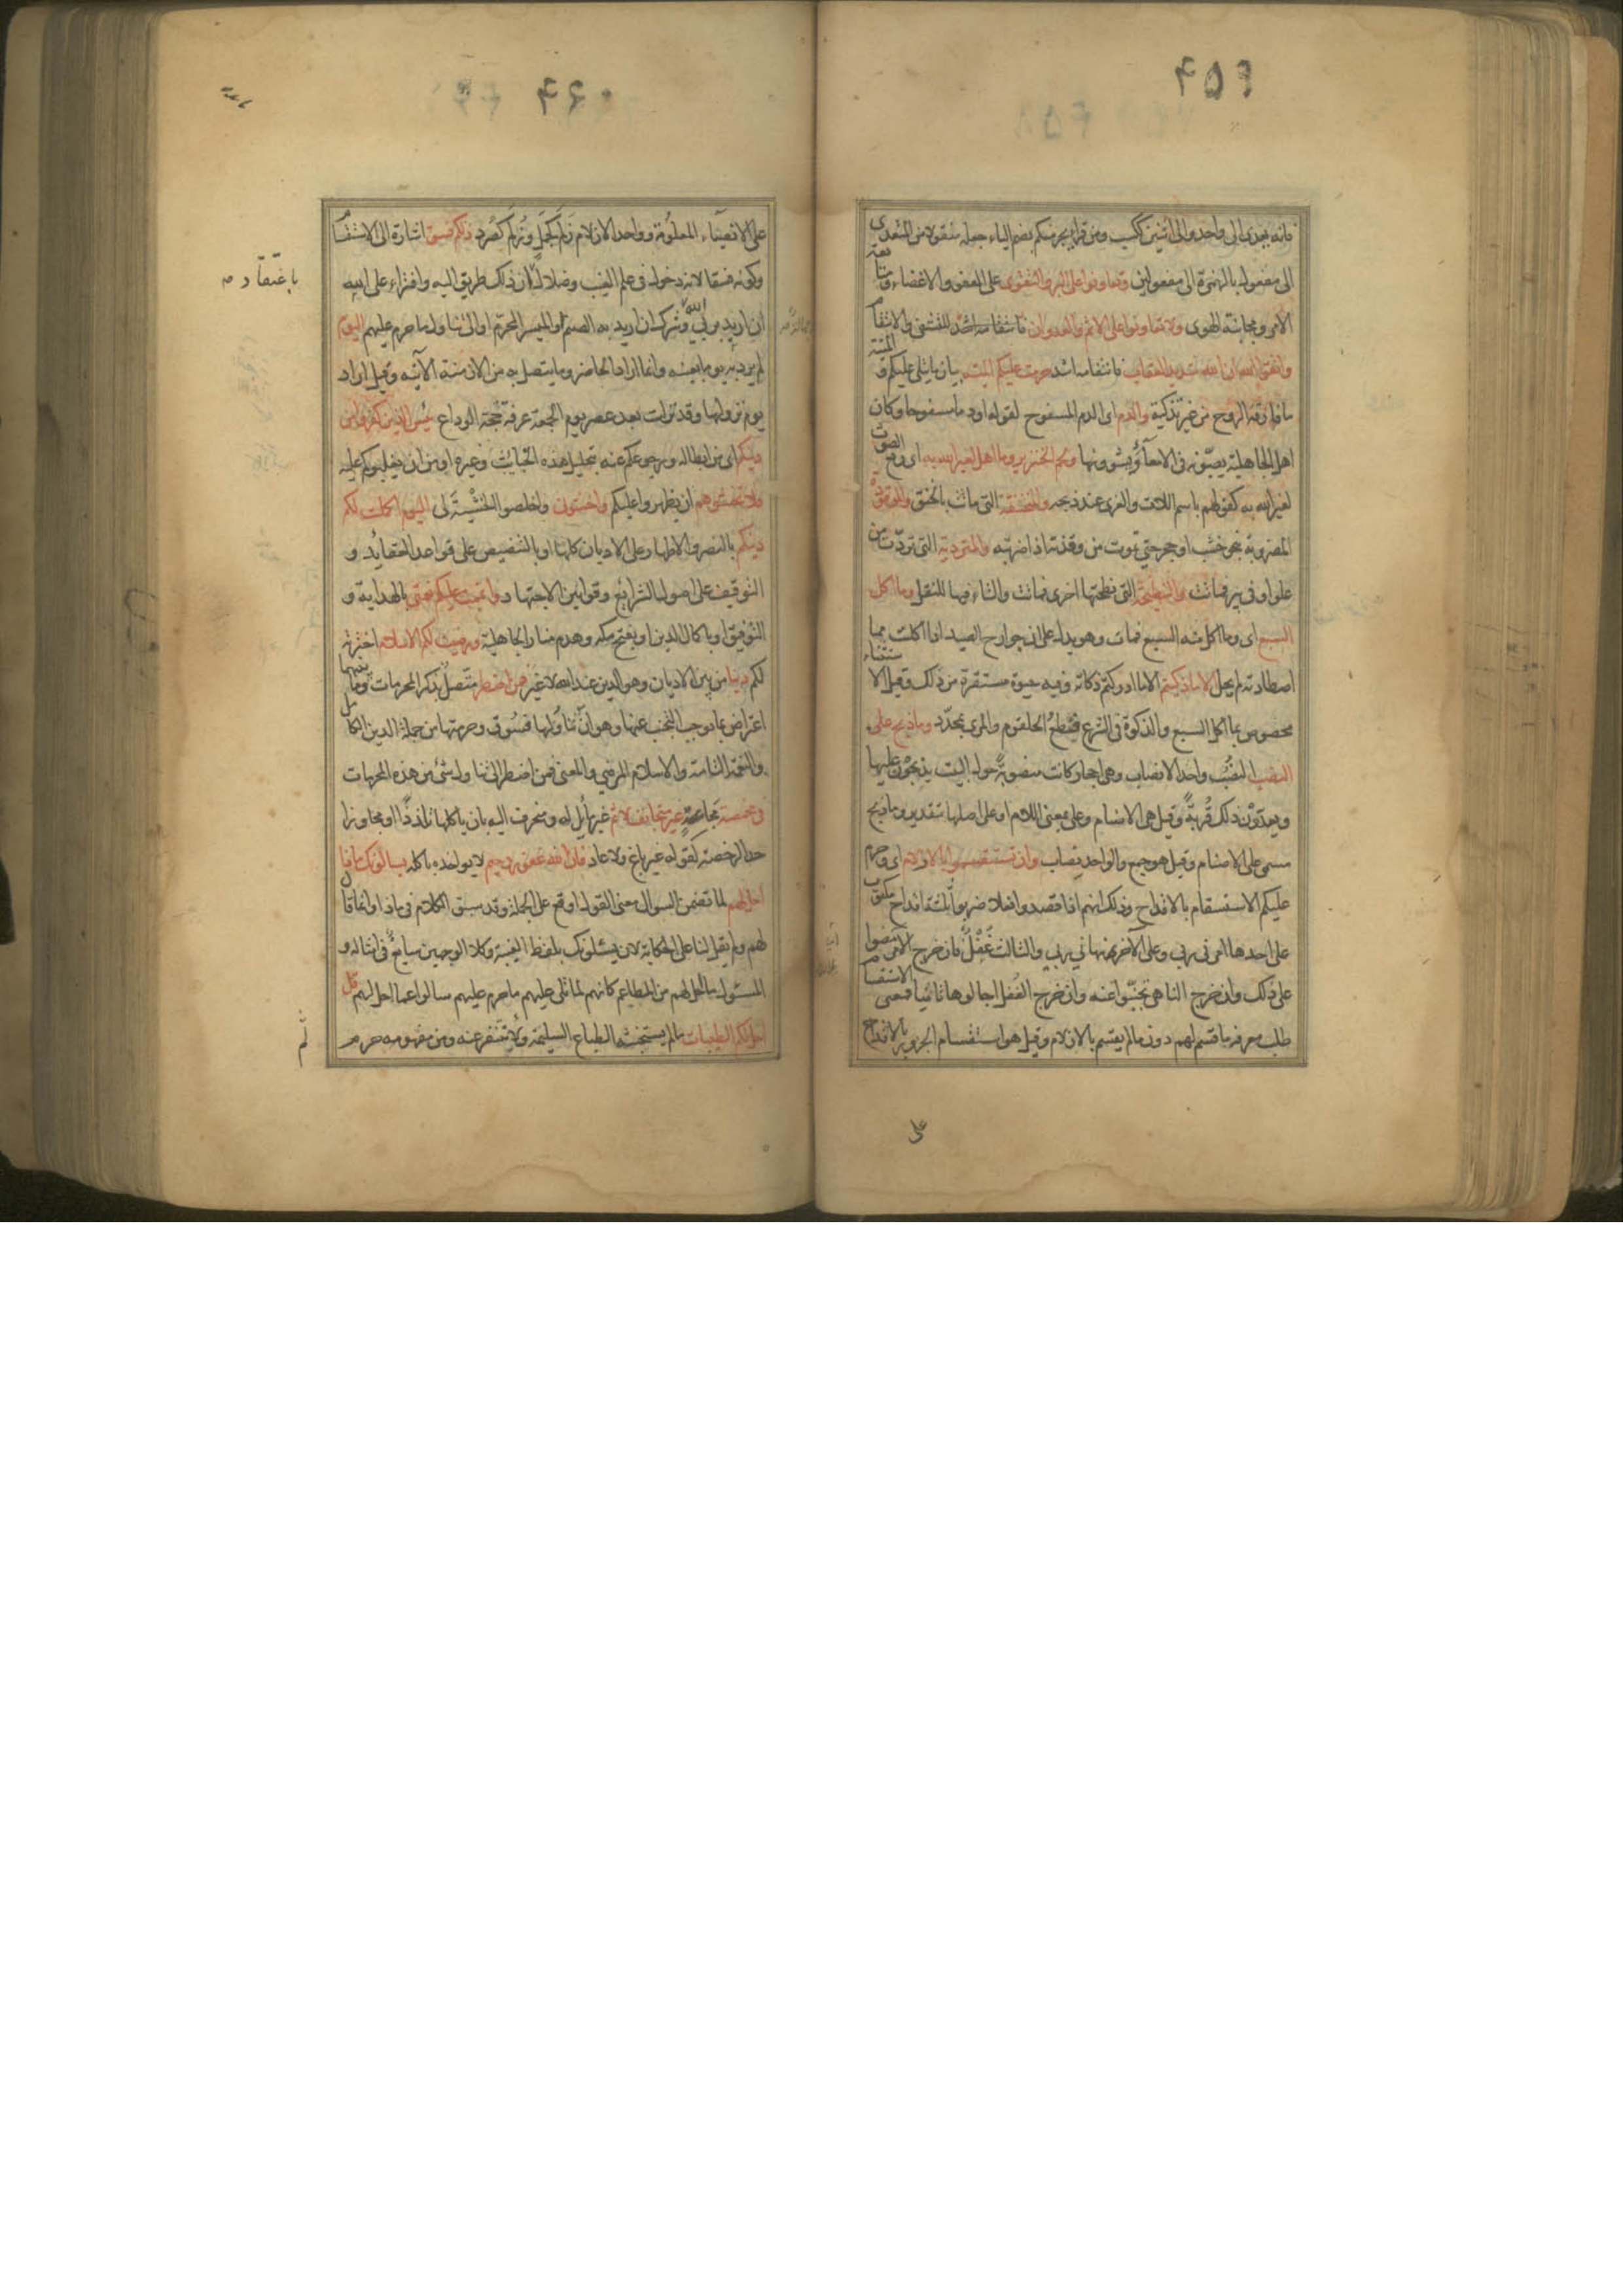 ٤٥٩
فانه يعدى الى واحد والى اثنين ككسب ومن قرأ يجرمنكم بضم الياء جعله منقولا من المتعدى
الى مفعول بالهمزة الى مفعولين وتعاونوا على البر والتقوى على العفو والاغضاء ومتابعة
الامر ومجانبة الهوى ولا تعاونوا على الاثم والعدوان للتشفى والانتقام
واتقوا الله ان الله شديد العقاب فانتقامه اشد حرمت عليكم الميتة بيان ما يتلى عليكم والميتة
ما فارقه الروح من غير تذكية والدم اى الدم المسفوح لقوله او دما مسفوحا وكان
اهل الجاهلية يصبونه فى الامعاء ويشوونها ولحم الخنزير وما اهل لغير الله به اى رفع الصوت
لغير الله به كقولهم باسم اللات والعزى عند ذبحه والمنخنقة التى ماتت بالخنق والموقوذة
المضروبة بنحو خشب او حجر حتى تموت من وقذته اذا ضربته والمتردية التى تردت من
علو او فى بير فماتت والنطيحة التى نطحتها اخرى فماتت والتاء فيها للنقل وما اكل
السبع اى وما اكل منه السبع فمات وهو يدل على ان جوارح الصيد اذا اكلت مما
اصطادته لم يحل الا ما ذكيتم الا ما ادركتم ذكاته وفيه حيوة مستقرة من ذلك وقيل الاستثناء
مخصوص بما اكل السبع والذكوة فى الشرع بقطع الحلقوم والمرى بمحدد وما ذبح على
النصب النصب واحد الانصاب وهى احجار كانت منصوبة حول البيت يذبحون عليها
ويعدون ذلك قربة وقيل هى الاصنام وعلى بمعنى اللام او على اصلها بتقدير وما ذبح
مسمى على الاصنام وقيل هو جمع والواحد نصاب وان تستقسموا بالازلام اى وحرم
عليكم الاستقسام بالاقداح وذلك انهم اذا قصدوا فعلا ضربوا ثلثة اقداح مكتوب
على احدها امرنى ربى وعلى الآخر نهانى ربى والثالث غفل فان خرج الامر مضوا
على ذلك وان خرج الناهى تجنبوا عنه وان خرج الغفل اجالوها ثانيا فمعنى الاستقسام
طلب معرفة ما قسم لهم دون ما لم يقسم بالازلام وقيل هو استقسام الجزور بالاقداح
على
٤٦٠
على الانصباء المعلومة وواحد الازلام زلم كجمل وزلم كصرد ذلكم فسق اشارة الى الاستقسام
وكونه فسقا لانه دخول فى علم الغيب وضلال ان ذلك طريق اليه وافتراء على الله
باعتقاد
ان اريد بربى الله وشرك ان اريد به الصنم او الميسر المحرم او الى تناول ما حرم عليهم اليوم
لم يرد به يوما بعينه وانما اراد الحاضر وما يتصل به من الازمنة الآتية وقيل اراد
يوم نزولها وقد نزلت بعد عصر يوم الجمعة عرفة حجة الوداع يئس الذين كفروا من
دينكم اى من ابطاله ورجوعكم عنه بتحليل هذه الخبائث وغيره او من ان يغلبوكم عليه
فلا تخشوهم ان يظهروا عليكم واخشون واخلصوا الخشية لى اليوم اكملت لكم
دينكم بالنصر والاظهار على الاديان كلها او بالتنصيص على قواعد العقايد و
التوقيف على اصول الشرائع وقوانين الاجتهاد واتممت عليكم نعمتى بالهداية و
التوفيق او باكمال الدين او بفتح مكة وهدم منار الجاهلية ورضيت لكم الاسلام اخترته
لكم دينا من بين الاديان وهو الدين عند الله لا غير فمن اضطر متصل بذكر المحرمات وما بينهما
اعتراض بما يوجب التجنب عنها وهو ان تناولها فسوق وحرمتها من جملة الدين الكامل
والنعمة التامة والاسلام المرضى والمعنى فمن اضطر الى تناول شئ من هذه المحرمات
فى مخمصة مجاعة غير متجانف لاثم غير مائل له ومنحرف اليه بان ياكلها تلذذا او مجاوزا
حد الرخصة كقوله غير باغ ولا عاد فان الله غفور رحيم لا يواخذه باكله يسالونك ماذا
احل لهم لما تضمن السوال معنى القول اوقع على الجملة وقد سبق الكلام فى ماذا وانما قال
لهم ولم يقل لنا على الحكاية لان يسئلونك بلفظ الغيبة وكلا الوجهين سايغ فى امثاله و
المسئول ما احل لهم من المطاعم كانهم لما تلى عليهم ما حرم عليهم سالوا عما احل لهم قل
احل لكم الطيبات ما لم يستخبثه الطباع السليمة ولم تتنفر عنه ومن مفهومه حرم